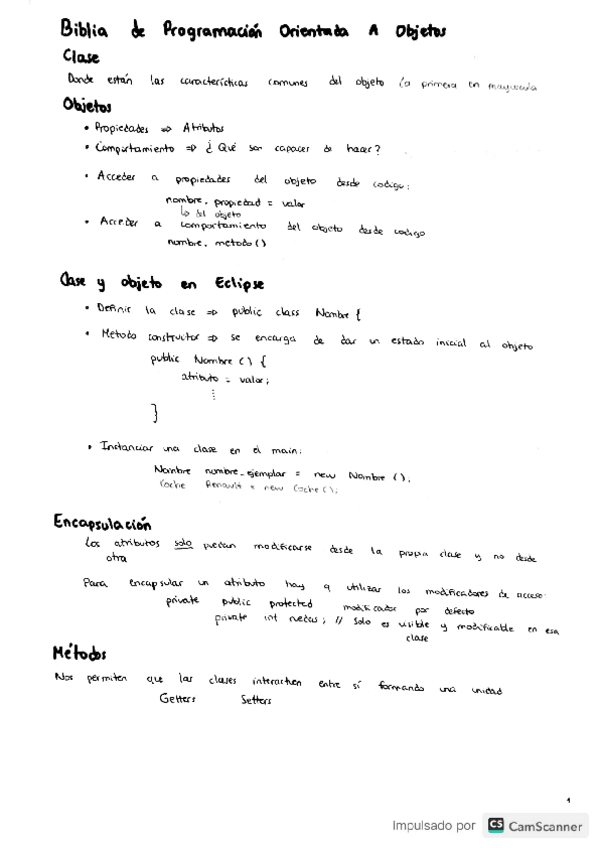 Biblia de Programación Orientada A Objetos
Clase
Donde están las características comunes del objeto la primera en mayuscula
Objetos
• Propiedades => Atributos
• Comportamiento => ¿Qué son capaces de hacer?
• Acceder a propiedades del objeto desde codigo:
nombre.propiedad = valor
↳ del objeto
• Acceder a comportamiento del objeto desde codigo
nombre.metodo()
Clase y objeto en Eclipse
• Definir la clase => public class Nombre {
• Metodo constructor => se encarga de dar un estado inicial al objeto
public Nombre () {
atributo = valor;
⋮
}
• Instanciar una clase en el main:
Nombre nombre_ejemplar = new Nombre ();
Coche Renault = new Coche();
Encapsulación
Los atributos solo puedan modificarse desde la propia clase y no desde
otra
Para encapsular un atributo hay q utilizar los modificadores de acceso:
private public protected modificador por defecto
private int ruedas; // Solo es visible y modificable en esa
clase
Métodos
Nos permiten que las clases interactuen entre sí formando una unidad
Getters Setters
1
Impulsado por CS CamScanner